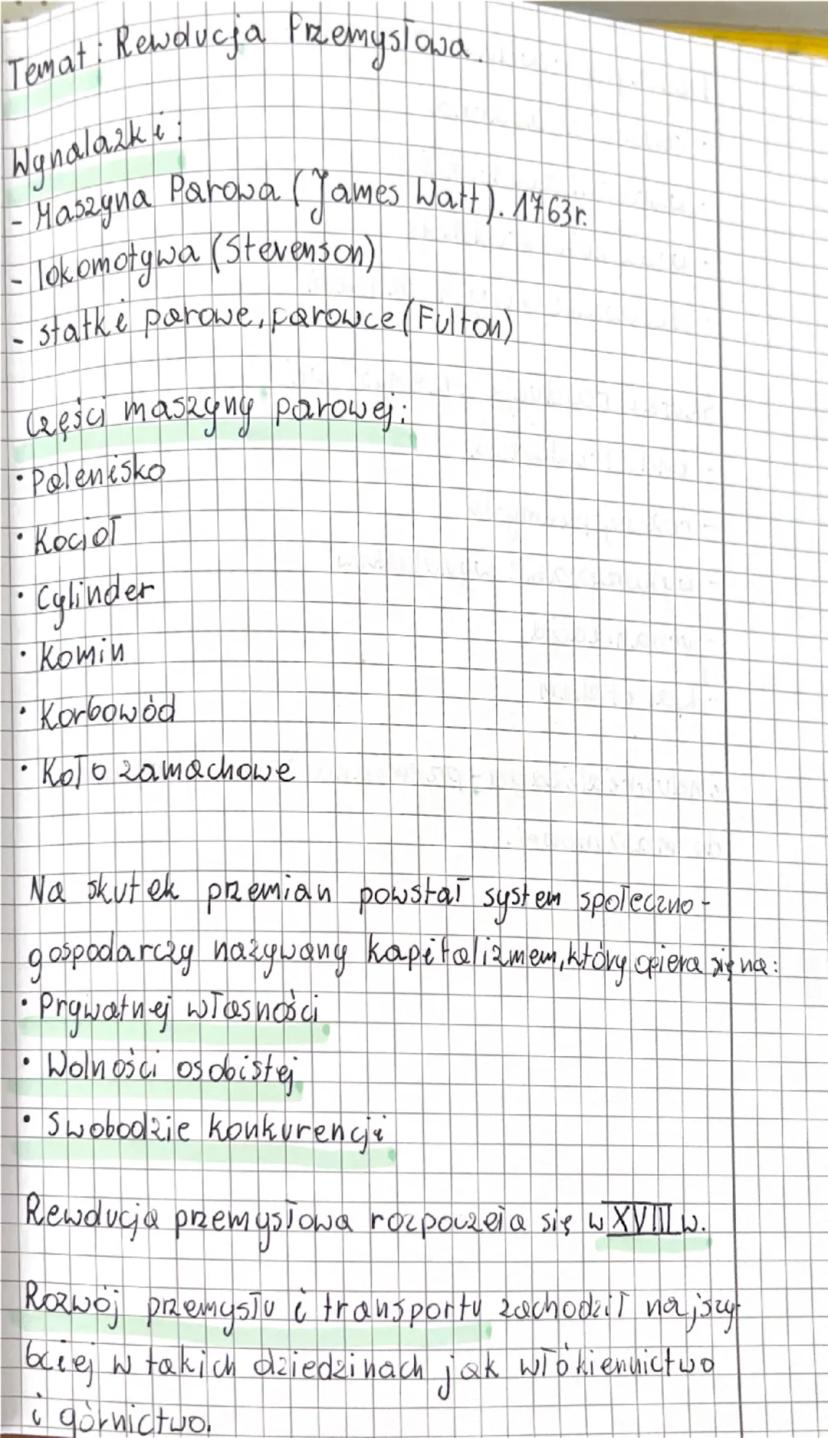 Temat: Rewolucja Przemysłowa.
Wynalazki:
- Maszyna Parowa (James Watt). 1763r.
- lokomotywa (Stevenson)
- statki parowe, parowce (Fulton)
Części maszyny parowej:
• Palenisko
• Kocioł
• Cylinder
• Komin
• Korbowód
• Koło zamachowe
Na skutek przemian powstał system społeczno-
gospodarczy nazywany kapitalizmem, który opiera się na:
• Prywatnej własności
• Wolności osobistej
• Swobodzie konkurencji
Rewolucja przemysłowa rozpoczęła się w XVIII w.
Rozwój przemysłu i transportu zachodził najszy-
bciej w takich dziedzinach jak włókiennictwo
i górnictwo.